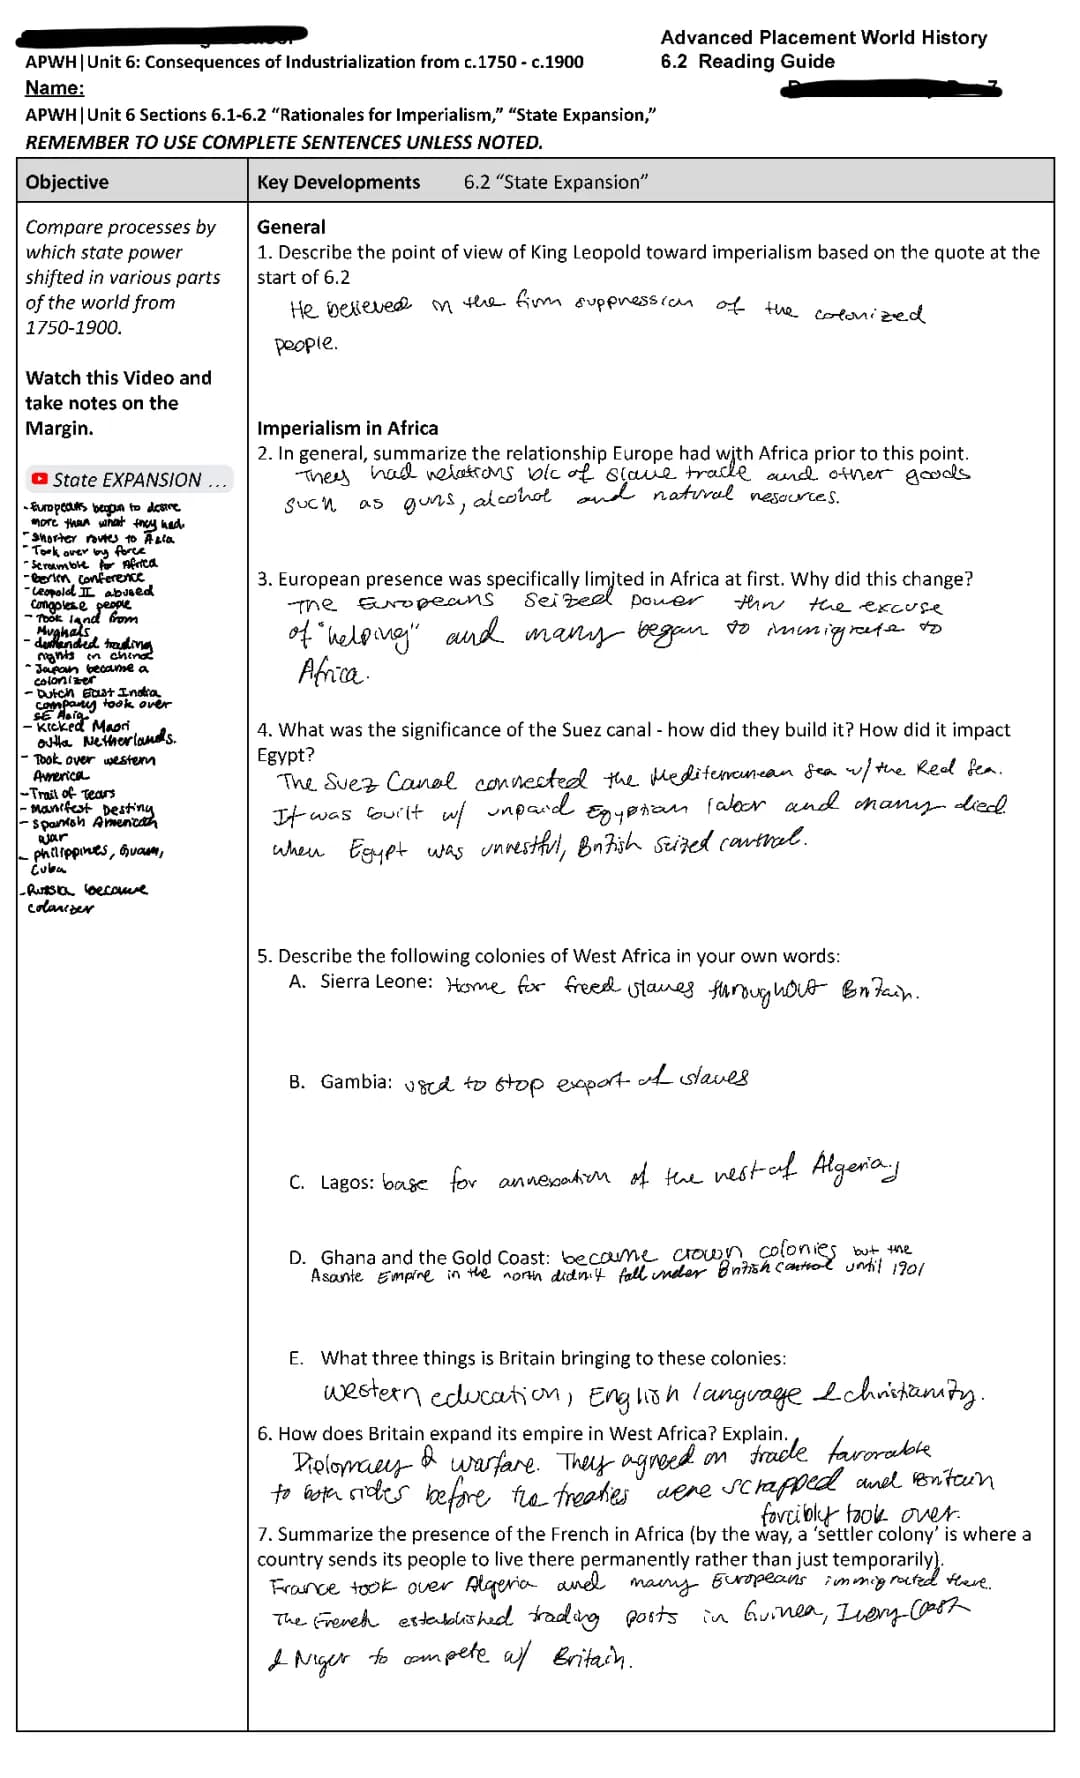 Advanced Placement World History
APWH|Unit 6: Consequences of Industrialization from c.1750 - c.1900
6.2 Reading Guide
Name:
APWH|Unit 6 Sections 6.1-6.2 “Rationales for Imperialism,” “State Expansion,”
REMEMBER TO USE COMPLETE SENTENCES UNLESS NOTED.
Objective
Key Developments 6.2 “State Expansion”
Compare processes by
which state power
shifted in various parts
of the world from
1750-1900.
Watch this Video and
take notes on the
Margin.
State EXPANSION ...
- Europeans began to desire
more than what they had.
- Shorter routes to Asia
- Took over by force
- Scramble for Africa
- Berlin Conference
- Leopold II abused
Congolese people
- Took land from
Mughals
- demanded trading
rights in china
- Japan became a
colonizer
- Dutch East India
company took over
SE Asia
- Kicked Maori
outta Netherlands.
- Took over western
America
- Trail of Tears
- Manifest Destiny
- Spanish American
war
- philippines, Guam,
Cuba
- Russia became
colonizer
General
1. Describe the point of view of King Leopold toward imperialism based on the quote at the
start of 6.2
He believed in the firm suppression of the colonized
people.
Imperialism in Africa
2. In general, summarize the relationship Europe had with Africa prior to this point.
They had relations b/c of slave trade and other goods
such as guns, alcohol and natural resources.
3. European presence was specifically limited in Africa at first. Why did this change?
The Europeans seized power thru the excuse
of "helping" and many began to immigrate to
Africa.
4. What was the significance of the Suez canal - how did they build it? How did it impact
Egypt?
The Suez Canal connected the Mediterranean Sea w/ the Red Sea.
It was built w/ unpaid Egyptian labor and many died
when Egypt was unrestful, British seized control.
5. Describe the following colonies of West Africa in your own words:
A. Sierra Leone: Home for freed slaves throughout Britain.
B. Gambia: used to stop export of slaves
C. Lagos: base for annexation of the rest of Algeria,
D. Ghana and the Gold Coast: became crown colonies but the
Asante Empire in the north didn't fall under British control until 1901
E. What three things is Britain bringing to these colonies:
western education, English language & christianity.
6. How does Britain expand its empire in West Africa? Explain.
Diplomacy & warfare. They agreed on trade favorable
to both sides before the treaties were scrapped and Britain
forcibly took over.
7. Summarize the presence of the French in Africa (by the way, a ‘settler colony’ is where a
country sends its people to live there permanently rather than just temporarily).
France took over Algeria and many Europeans immigrated there.
The French established trading posts in Guinea, Ivory Coast
& Niger to compete w/ Britain.